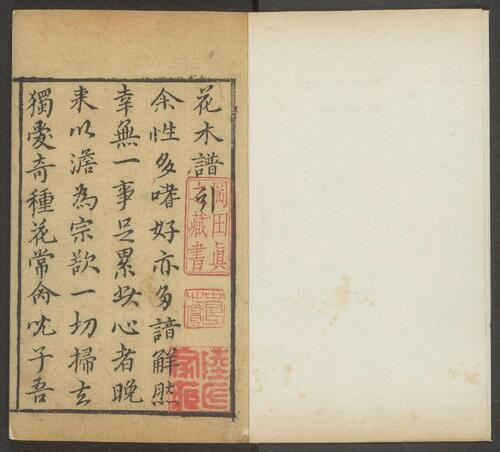 花木譜引
余性多嗜好亦多諳解然
幸無一事足累其心者晚
来以澹為宗歆一切掃去
獨愛奇種花常命兒子吾
岡田眞
之藏書